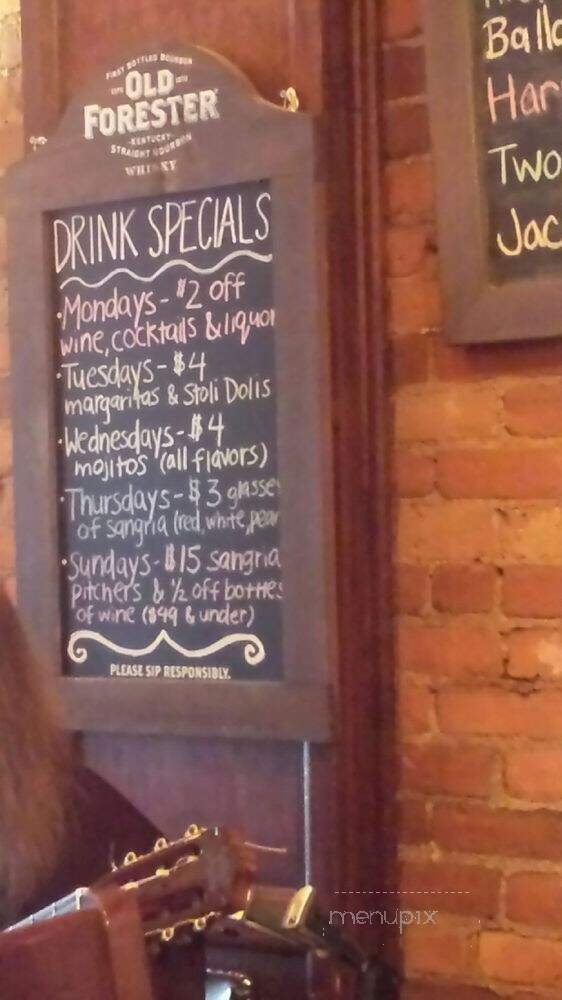 FIRST BOTTLED BOURBON
OLD
FORESTER
KENTUCKY
STRAIGHT BOURBON
WHISKY
DRINK SPECIALS
·Mondays - $2 off
wine, cocktails & liquor
·Tuesdays - $4
margaritas & Stoli Dolis
·Wednesdays - $4
mojitos (all flavors)
·Thursdays - $3 glasses
of sangria (red, white, pear
·Sundays - $15 sangria
pitchers & ½ off bottles
of wine ($49 & under)
PLEASE SIP RESPONSIBLY.
Balla
Har
Two
Jac
menupix